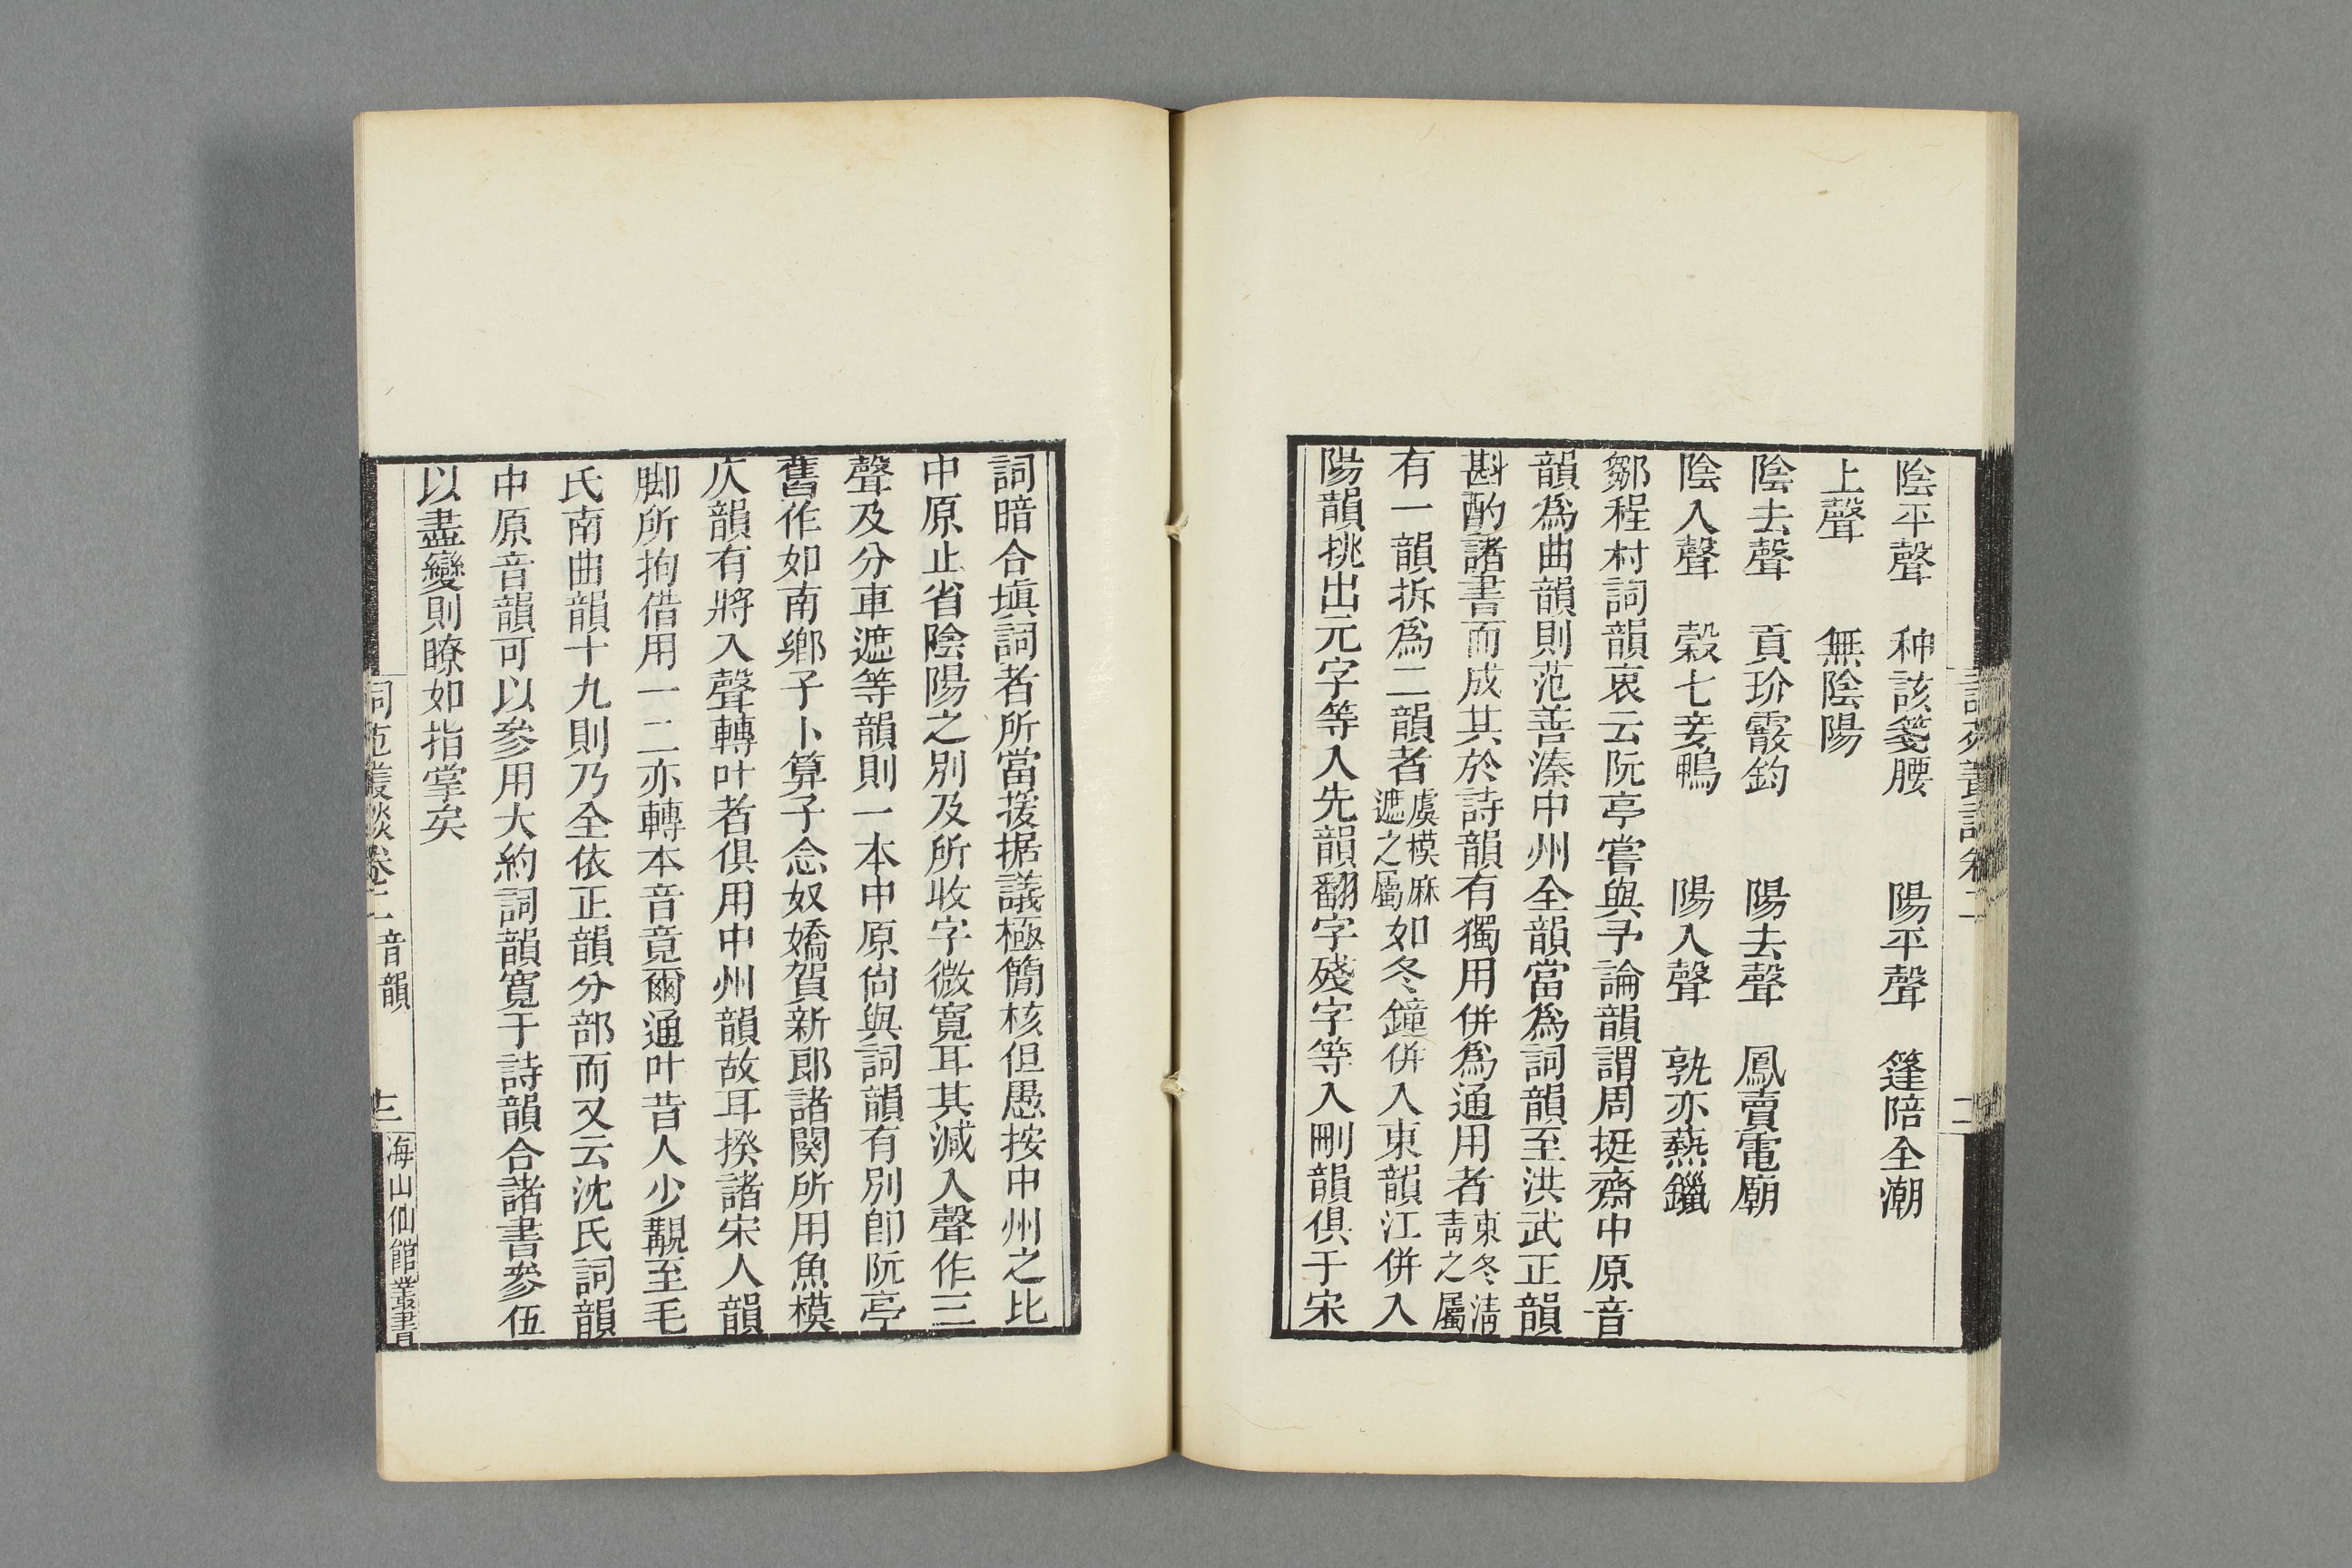 陰平聲　种該箋腰　陽平聲　篷陪全潮
上聲　無陰陽
陰去聲　貢玠霰釣　陽去聲　鳳賣電廟
陰入聲　穀七妾鴨　陽入聲　孰亦爇鑞
鄒程村詞韻衷云阮亭嘗與予論韻謂周挺齋中原音
韻爲曲韻則范善溱中州全韻當爲詞韻至洪武正韻
斟酌諸書而成其於詩韻有獨用併爲通用者東冬淸青之屬
有一韻拆爲二韻者虞模麻遮之屬如冬鐘併入東韻江併入
陽韻挑出元字等入先韻翻字殘字等入刪韻俱于宋
詞暗合塡詞者所當援据議極簡核但愚按中州之比
中原止省陰陽之別及所收字微寬耳其減入聲作三
聲及分車遮等韻則一本中原尙與詞韻有別卽阮亭
舊作如南鄉子卜算子念奴嬌賀新郎諸闋所用魚模
仄韻有將入聲轉叶者俱用中州韻故耳揆諸宋人韻
脚所拘借用一二亦轉本音竟爾通叶昔人少覯至毛
氏南曲韻十九則乃全依正韻分部而又云沈氏詞韻
中原音韻可以參用大約詞韻寬于詩韻合諸書參伍
以盡變則瞭如指掌矣
詞苑叢談卷二　音韻　三　海山仙館叢書